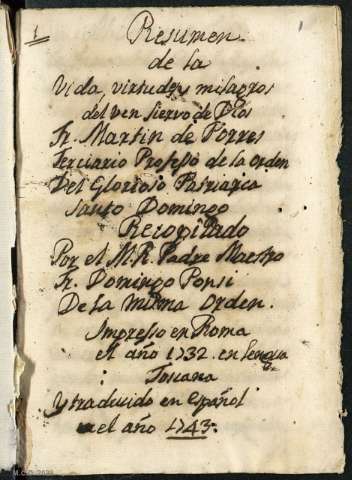 1
Resumen
de la
Vida, virtudes y milagros
del ven siervo de Dios
Fr. Martin de Porres
Terciario Professo de la orden
Del Glorioso Patriarca
Santo Domingo
Recopilado
Por el M.R. Padre Maestro
Fr. Domingo Ponsi
De la misma orden.
Impresso en Roma
el año 1732. en lengua
Toscana
Y traducido en español
el año 1743.